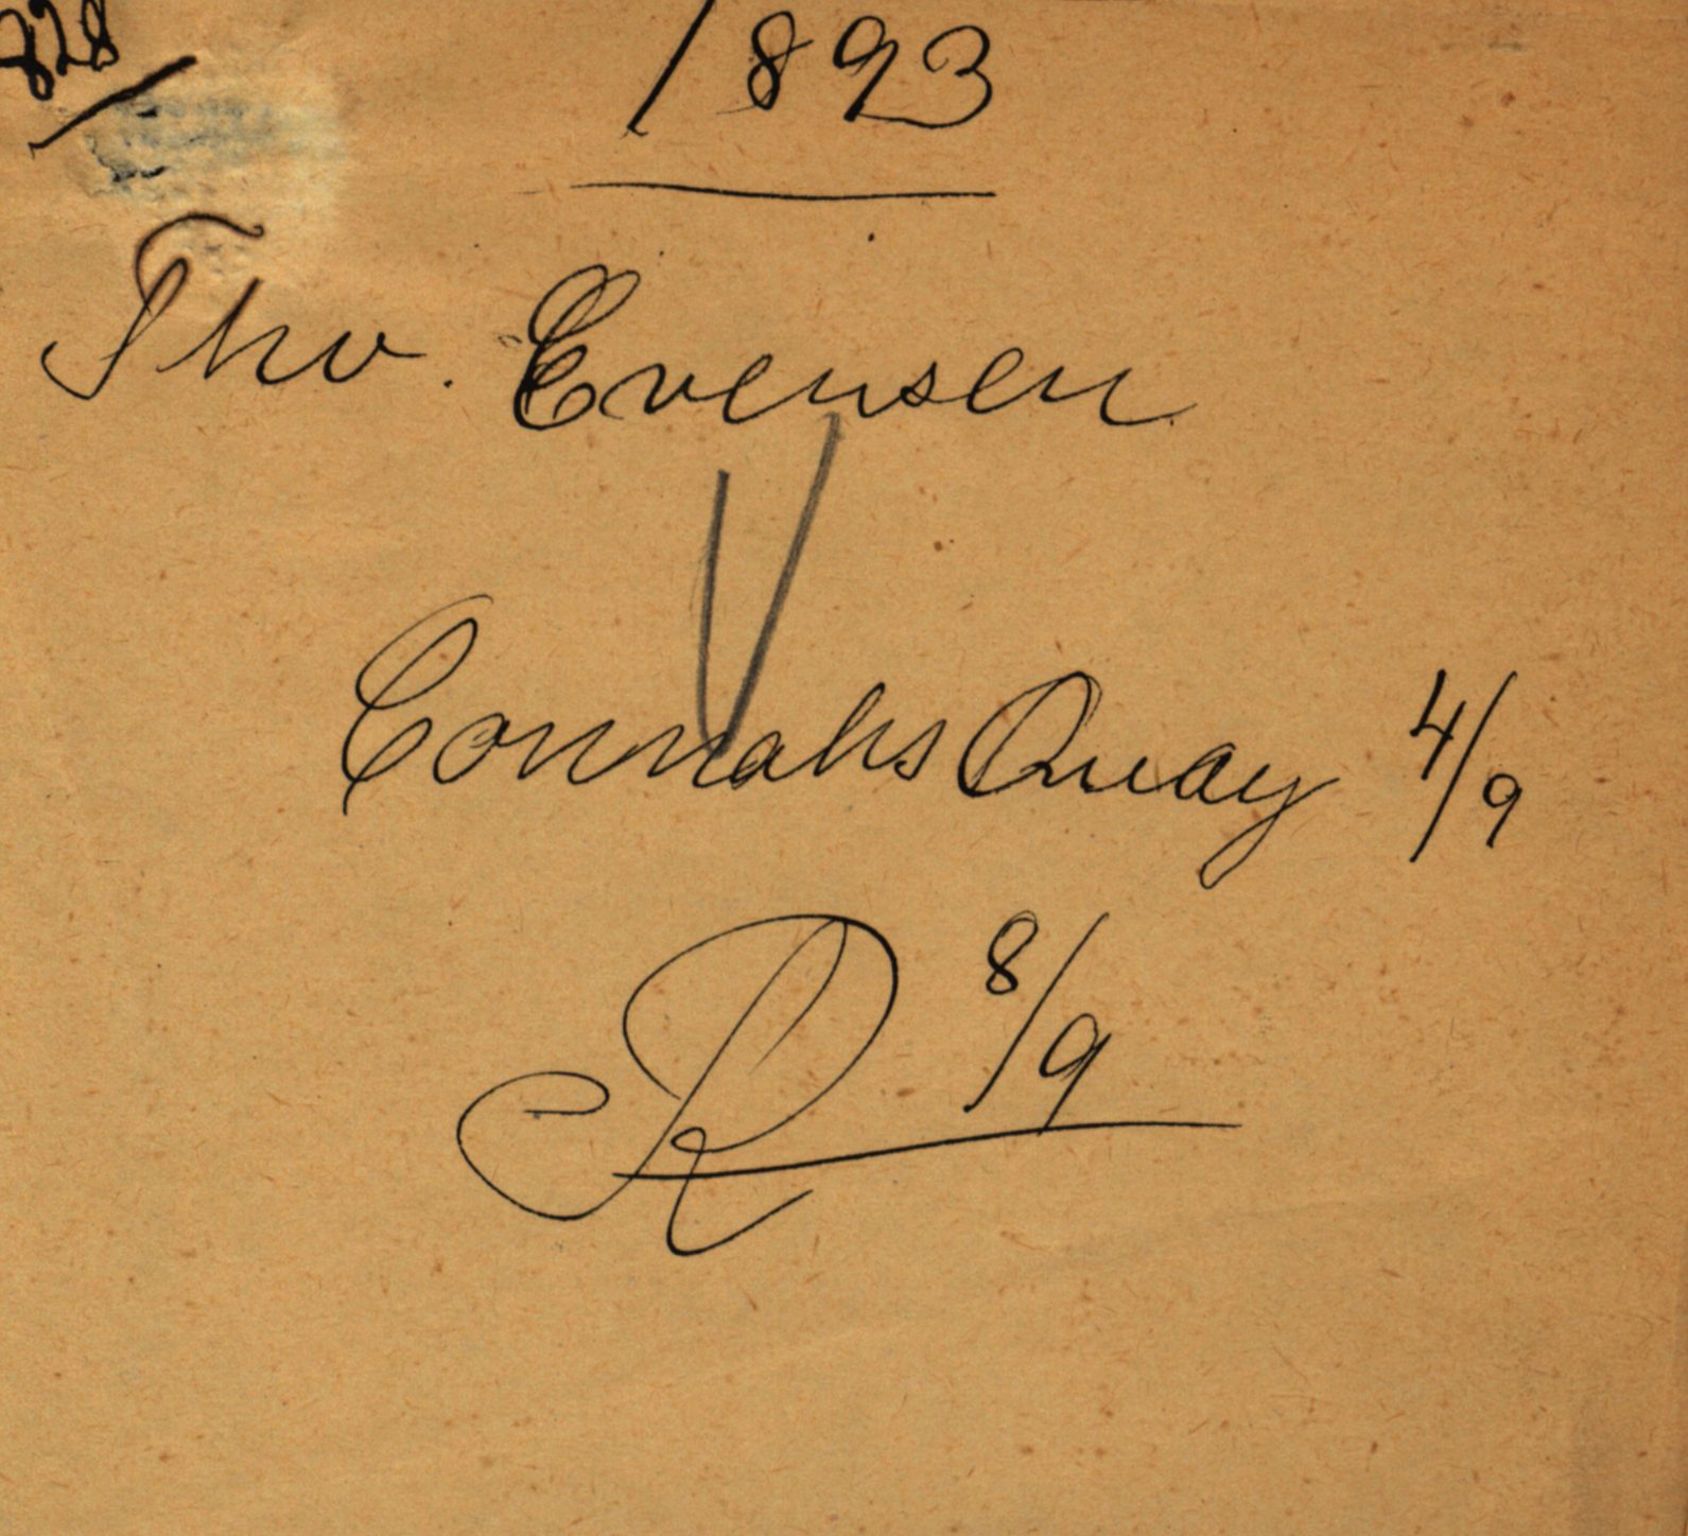 828
1893
Thv. Evensen
Connahs Quay 4/9
R 8/9